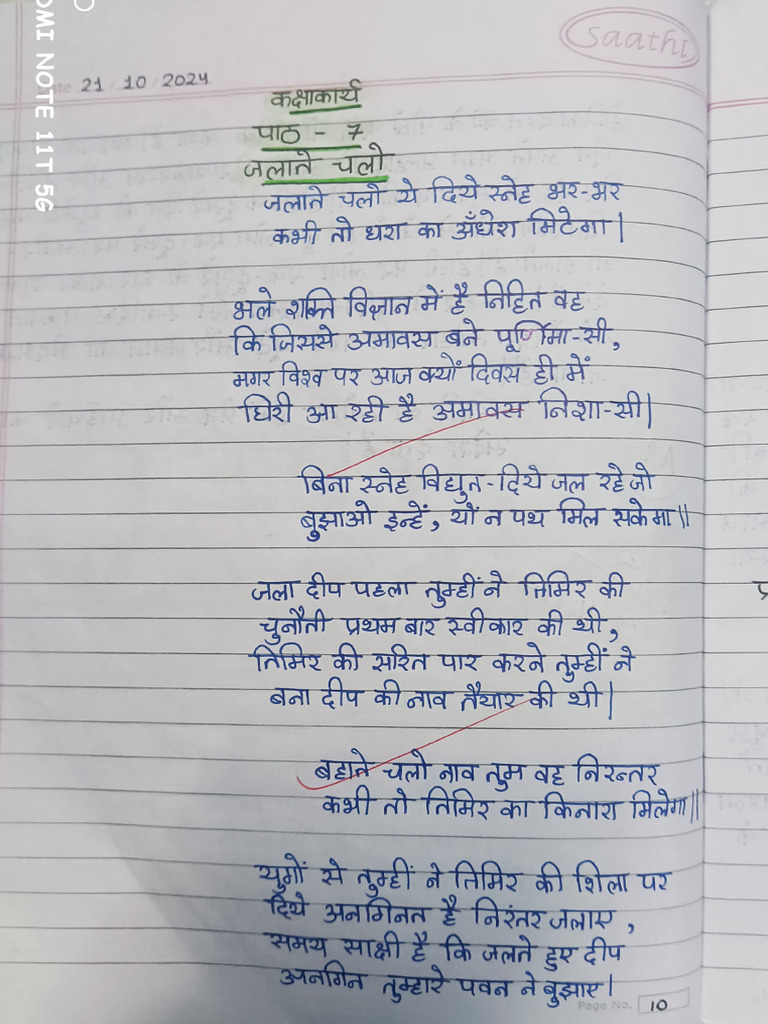 Saathi
REDMI NOTE 11T 5G
Date 21 / 10 / 2024
कक्षाकार्य
पाठ - 7
जलाते चलो
जलाते चलो ये दिये स्नेह भर-भर
कभी तो धरा का अँधेरा मिटेगा|
भले शक्ति विज्ञान में है निहित वह
कि जिससे अमावस बने पूर्णिमा-सी,
मगर विश्व पर आज क्यों दिवस ही में
घिरी आ रही है अमावस निशा-सी|
बिना स्नेह विद्युत-दिये जल रहे जो
बुझाओ इन्हें, यों न पथ मिल सकेगा||
जला दीप पहला तुम्हीं ने तिमिर की
चुनौती प्रथम बार स्वीकार की थी,
तिमिर की सरित पार करने तुम्हीं ने
बना दीप की नाव तैयार की थी|
बहाते चलो नाव तुम वह निरन्तर
कभी तो तिमिर का किनारा मिलेगा||
युगों से तुम्हीं ने तिमिर की शिला पर
दिये अनगिनत है निरंतर जलाए,
समय साक्षी है कि जलते हुए दीप
अनगिन तुम्हारे पवन ने बुझाए|
Page No. 10